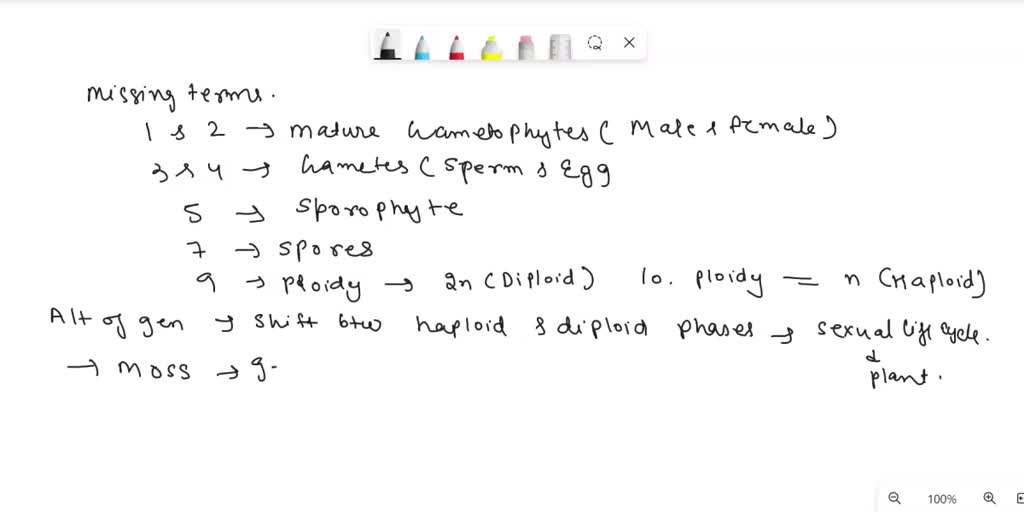 missing terms.
1 & 2 → mature Gametophytes ( Male & female )
3 & 4 → Gametes ( Sperm & Egg
5 → Sporophyte
7 → spores
9 → ploidy → 2n (Diploid) 10. ploidy = n (Haploid)
Alt of gen → shift btw haploid & diploid phases → sexual life cycle.
→ moss → g- & plant.
100%